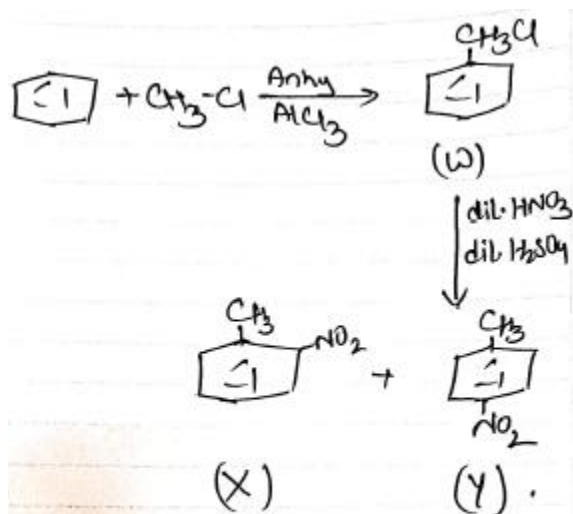 CH3Cl
+ CH3-Cl Anhy AlCl3
(W)
dil. HNO3
dil. H2SO4
CH3 NO2 + CH3
NO2
(X) (Y).